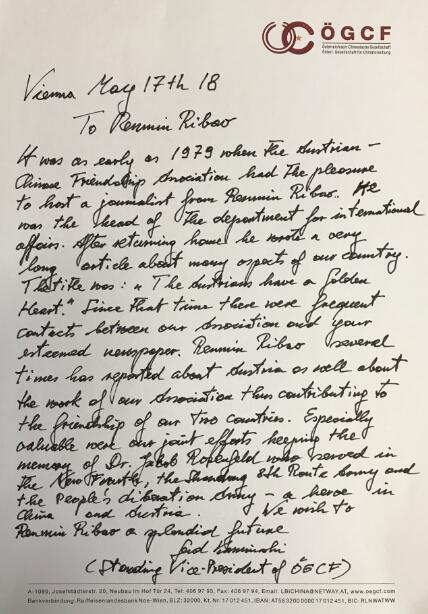 ÖGCF
Österreichisch-Chinesische Gesellschaft
Österr. Gesellschaft für Chinaforschung
Vienna May 17th 18
To Renmin Ribao
It was as early as 1979 when the Austrian-
Chinese Friendship Association had the pleasure
to host a journalist from Renmin Ribao. He
was the head of the department for international
affairs. After returning home he wrote a very
long article about many aspects of our country.
The title was: "The Austrians have a Golden
Heart." Since that time there were frequent
contacts between our Association and your
esteemed newspaper. Renmin Ribao several
times has reported about Austria as well about
the work of our Association thus contributing to
the friendship of our two countries. Especially
valuable were our joint efforts keeping the
memory of Dr. Jakob Rosenfeld who served in
the New Fourth, the Shandong 8th Route Army and
the People's Liberation Army - a heroe in
China and Austria. We wish to
Renmin Ribao a splendid future
Kaminski
(Standing Vice-President of ÖGCF)
A-1080, Josefstädterstr. 20, Neubau im Hof Tür 24, Tel: 406 97 93, Fax: 406 97 94, Email: LBICHINA@NETWAY.AT, www.oegcf.com
Bankverbindung: Raiffeisenlandesbank Noe-Wien, BLZ: 32000, Kt. Nr: 17 012 451, IBAN: AT56 3200 0000 17 012 451, BIC: RLNWATWW